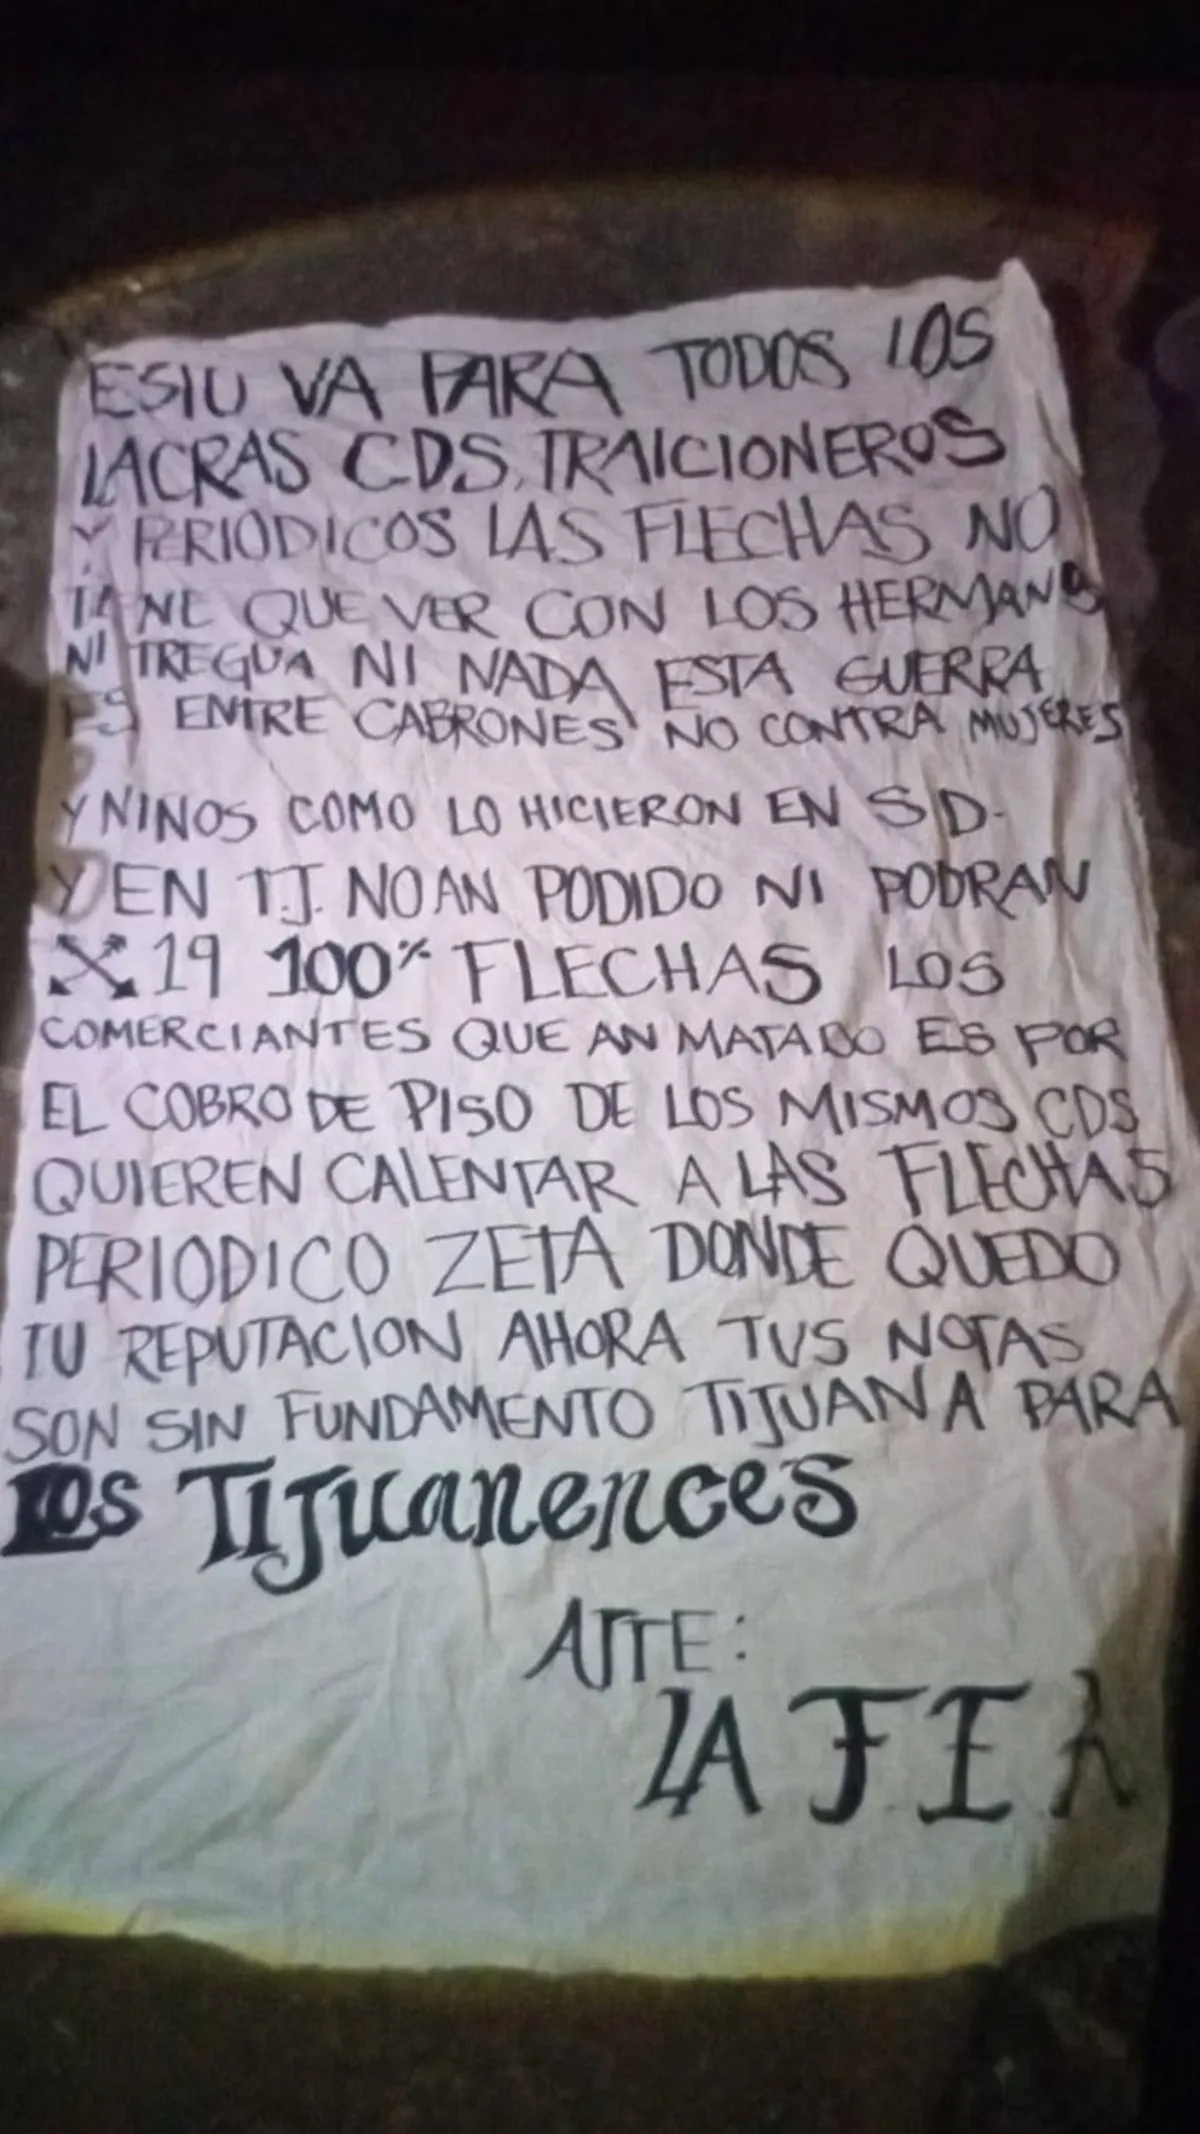 ESTO VA PARA TODOS LOS
LACRAS CDS, TRAICIONEROS
Y PERIODICOS LAS FLECHAS NO
QUE VER CON LOS HERMANOS
NI TREGUA NI NADA ESTA GUERRA
ES ENTRE CABRONES NO CONTRA MUJERES
Y NINOS COMO LO HICIERON EN S D.
Y EN T.J. NO AN PODIDO NI PODRAN
19 100% FLECHAS LOS
COMERCIANTES QUE AN MATADO ES POR
EL COBRO DE PISO DE LOS MISMOS CDS
QUIEREN CALENTAR A LAS FLECHAS
PERIODICO ZETA DONDE QUEDO
TU REPUTACION AHORA TUS NOTAS
SON SIN FUNDAMENTO TIJUANA PARA
Los Tijuanences
ATTE:
LA FEA